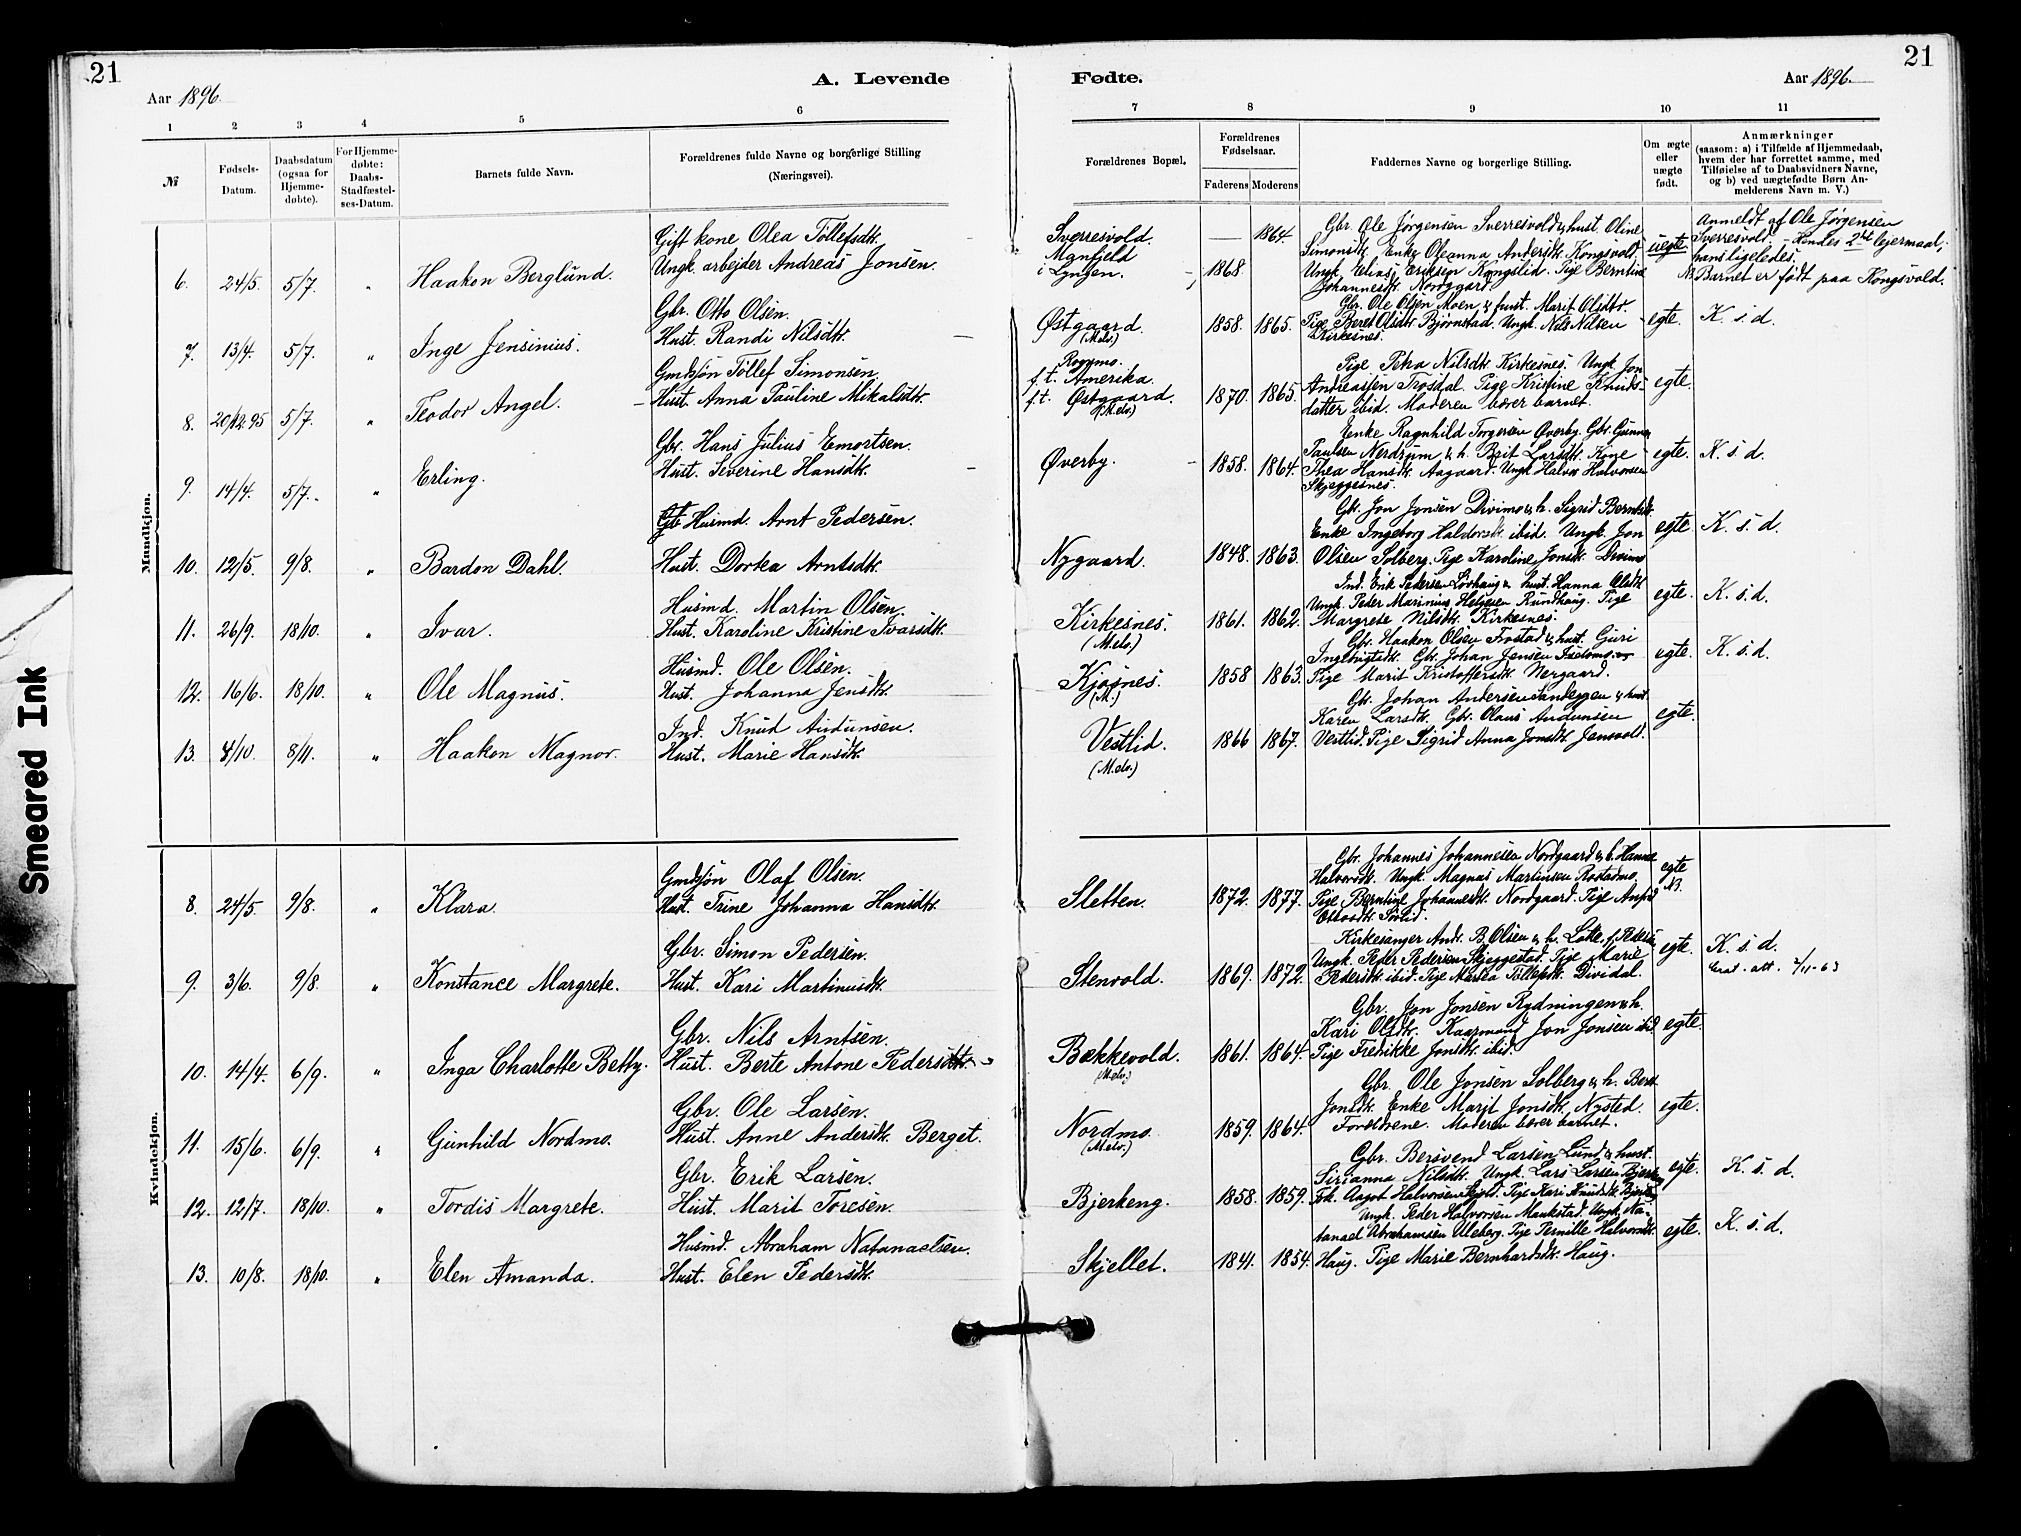 21
Aar 1896.
A. Levende
1 2 3 4 5 6
№
Fødsels-Datum.
Daabsdatum (ogsaa for Hjemme-døbte).
For Hjemme-døbte: Daabs-Stadfæstel-ses-Datum.
Barnets fulde Navn.
Forældrenes fulde Navne og borgerlige Stilling (Næringsvei).
Mandkjøn.
Gift kone Olea Tøllefsdtr.
6. 24/5. 5/7. " Haakon Berglund. Ungk. arbejder Andreas Jonsen.
Gbr. Otto Olsen.
7. 13/4. 5/7. " Inge Jensinius. Hust. Randi Nilsdtr.
Gmdsøn Tøllef Simonsen.
8. 20/12 95 5/7. " Teodor Angel. Hust. Anna Pauline Mikalsdtr.
Gbr. Hans Julius Emertsen.
9. 14/4. 5/7. " Erling. Hust. Severine Hansdtr.
Husmd. Arnt Pedersen.
10. 12/5. 9/8. " Bardon Dahl. Hust. Dortea Arntsdtr.
Husmd. Martin Olsen.
11. 26/9. 18/10. " Ivar. Hust. Karoline Kristine Ivarsdtr.
Husmd. Ole Olsen.
12. 16/6. 18/10. " Ole Magnus. Hust. Johanna Jensdtr.
Ind. Knud Audunsen.
13. 4/10. 8/11. " Haakon Magnor. Hust. Marie Hansdtr.
Kvindekjøn.
Gmdsøn Olaf Olsen.
8. 24/5. 9/8. " Klara. Hust. Trine Johanna Hansdtr.
Gbr. Simon Pedersen.
9. 3/6. 9/8. " Konstance Margrete. Hust. Kari Martinusdtr.
Gbr. Nils Arntsen.
10. 14/4. 6/9. " Inga Charlotte Betty. Hust. Berte Antone Pedersdtr.
Gbr. Ole Larsen.
11. 15/6. 6/9. " Gunhild Nordmo. Hust. Anne Andersdtr. Berget.
Gbr. Erik Larsen.
12. 12/7. 18/10. " Tordis Margrete. Hust. Marit Toresen.
Husmd. Abraham Natanaelsen.
13. 10/8. 18/10. " Elen Amanda. Hust. Elen Pedersdtr.
Fødte.
Aar 1896.
21
7 8 9 10 11
Forældrenes Bopæl.
Forældrenes Fødselsaar.
Faderens Moderens
Faddernes Navne og borgerlige Stilling.
Om ægte eller uægte født.
Anmærkninger
(saasom: a) i Tilfælde af Hjemmedaab,
hvem der har forrettet samme, med
Tilføielse af to Daabsvidners Navne,
og b) ved uægtefødte Børn An-
melderens Navn m. V.)
Sverresvold. — 1864. Gbr. Ole Jørgensen Sverresvold & hust. Oline uegte. Anmeldt af Ole Jørgensen
Simonsdtr. Enke Oleanna Andersdtr. Kongsvold. Sverresvold. – Hendes 2det lejermaal;
i Lyngen. 1868. Ungk. Elias Eriksen Kongslid. Pige Berntine hans ligeledes.
Johannesdtr. Nordgaard. NB Barnet er født paa Kongsvold.
Gbr. Ole Olsen Moen & hust. Marit Olsdtr.
Østgaard. 1858. 1865. Pige Beret Olsdtr. Bjørnstad. Ungk. Nils Nilsen egte. K. s. d.
(M.elv.) Kirkesnes.
Pige Petra Nilsdtr. Kirkesnes. Ungk. Jon
f. t. Amerika.
f. t. Østgaard. 1870. 1865. Andreassen Trosdal. Pige Kristine Knuds- egte.
(M.elv.) datter ibid. Moderen bærer barnet.
Enke Ragnhild Torgersen Øverby. Gbr. Gunnar
Øverby. 1858. 1864. Paulsen Nerdrum & h. Brit Larsdtr. Kone egte. K. s. d.
Thea Hansdtr. Aagaard. Ungk. Halvor Halvorsen
Skjeggesnes.
Gbr. Jon Jonsen Divimo & h. Sigrid Berntsdtr.
Enke Ingeborg Haldorsdtr. ibid. Ungk. Jon egte K. s. d.
Nygaard. 1848. 1863. Olsen Solberg. Pige Karoline Jonsdtr. Divimo
Ind. Erik Pedersen Løvhaug & hust. Hanna Olsdtr.
Ungk. Peder Marinius Helgesen Rundhaug. Pige egte. K. s. d.
Kirkesnes. 1861. 1862. Margrete Nilsdtr. Kirkesnes.
(M.elv.) Gbr. Haakon Olsen Frostad & hust. Guri
Ingebrigtsdtr. Gbr. Johan Jensen egte. K. s. d.
Kjosnes. 1858 1863. Pige Marit Kristoffersdtr. Nergaard.
(M.)
Gbr. Johan Andersen Sandeggen & hust
Karen Larsdtr. Gbr. Olaus Andunsen egte.
Vestlid. 1866 1867. Vestlid. Pige Sigrid Anna Jonsdtr. Jensvold.
(M.elv.)
Gbr. Johannes Johannesen Nordgaard & h. Hanna egte
Halvorsdtr. Ungk. Magnus Martinsen Rostadmo. NB.
Sletten. 1872. 1877. Pige Berntine Johannesdtr. Nordgaard. Pige
Ottosdtr. Sørlid.
Kirkesanger Andr. B. Olsen & h. Lotte f. Pedersen
Ungk. Peder Pedersen Skjeggestad. Pige Marie egte. K. s. d.
Stenvold. 1869. 1872. Pedersdtr. ibid. Pige Martea Tøllefsdtr. Dividal. att. 2/11-63
Gbr. Jon Jonsen Rydningen & h.
Kari Olsdtr. Jon Jonsen ibid egte.
Bækkevold. 1861. 1864. Pige Fredrikke Jonsdtr. ibid.
(M.elv.)
Gbr. Ole Jonsen Solberg & h. Beret
Jonsdtr. Enke Marit Jonsdtr. Nysted. egte.
Nordmo. 1859. 1864. Foreldrene. Moderen bærer barnet.
(M.elv.)
Gbr. Bersvend Larsen Lund & hust.
Sirianna Nilsdtr. Ungk. Lars Larsen egte. K. s. d.
Bjerkeng. 1858. 1859. Frk. Aagot Halvorsen Skjold. Pige Kari Knudsdtr.
Ungk. Peder Halvorsen Maukstad. Ungk. Na-
tanael Abrahamsen Uleberg. Pige Pernille Halvorsdtr. egte. K. s. d.
Skjellet. 1841. 1854. Haug. Pige Marie Bernhardsdtr. Haug.
Smeared Ink